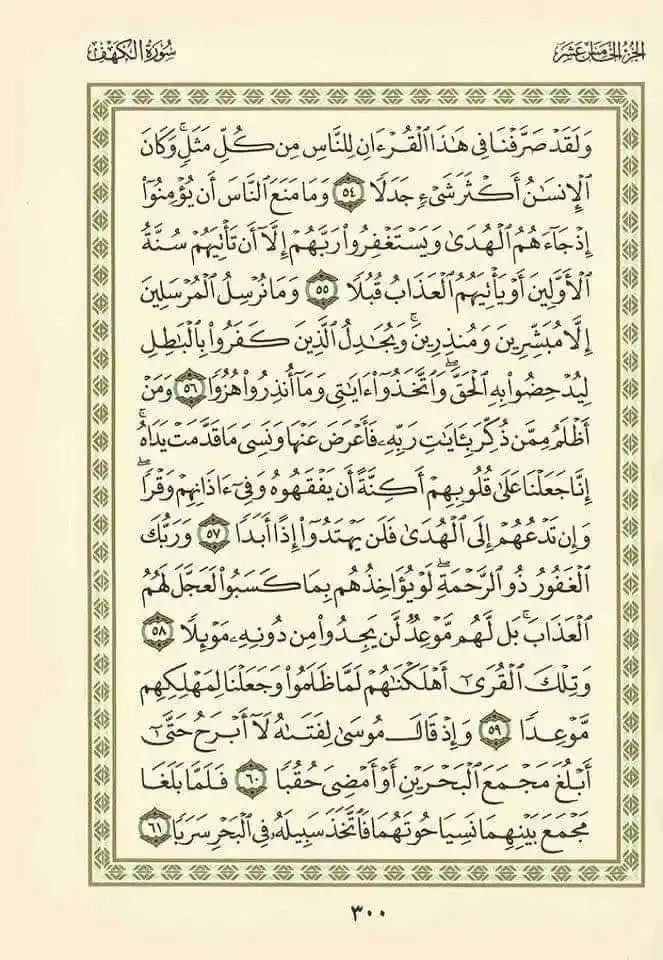 الجزء الخامس عشر
سورة الكهف
وَلَقَدْ صَرَّفْنَا فِي هَٰذَا الْقُرْءَانِ لِلنَّاسِ مِن كُلِّ مَثَلٍ ۚ وَكَانَ
الْإِنسَٰنُ أَكْثَرَ شَيْءٍ جَدَلًا ٥٤ وَمَا مَنَعَ النَّاسَ أَن يُؤْمِنُوٓا۟
إِذْ جَآءَهُمُ الْهُدَىٰ وَيَسْتَغْفِرُوا۟ رَبَّهُمْ إِلَّآ أَن تَأْتِيَهُمْ سُنَّةُ
الْأَوَّلِينَ أَوْ يَأْتِيَهُمُ الْعَذَابُ قُبُلًا ٥٥ وَمَا نُرْسِلُ الْمُرْسَلِينَ
إِلَّا مُبَشِّرِينَ وَمُنذِرِينَ ۚ وَيُجَٰدِلُ الَّذِينَ كَفَرُوا۟ بِالْبَٰطِلِ
لِيُدْحِضُوا۟ بِهِ الْحَقَّ ۖ وَاتَّخَذُوٓا۟ ءَايَٰتِي وَمَآ أُنذِرُوا۟ هُزُوًا ٥٦ وَمَنْ
أَظْلَمُ مِمَّن ذُكِّرَ بِـَٔايَٰتِ رَبِّهِۦ فَأَعْرَضَ عَنْهَا وَنَسِيَ مَا قَدَّمَتْ يَدَاهُ ۚ
إِنَّا جَعَلْنَا عَلَىٰ قُلُوبِهِمْ أَكِنَّةً أَن يَفْقَهُوهُ وَفِيٓ ءَاذَانِهِمْ وَقْرًا ۖ
وَإِن تَدْعُهُمْ إِلَى الْهُدَىٰ فَلَن يَهْتَدُوٓا۟ إِذًا أَبَدًا ٥٧ وَرَبُّكَ
الْغَفُورُ ذُو الرَّحْمَةِ ۖ لَوْ يُؤَاخِذُهُم بِمَا كَسَبُوا۟ لَعَجَّلَ لَهُمُ
الْعَذَابَ ۚ بَل لَّهُم مَّوْعِدٌ لَّن يَجِدُوا۟ مِن دُونِهِۦ مَوْئِلًا ٥٨
وَتِلْكَ الْقُرَىٰٓ أَهْلَكْنَٰهُمْ لَمَّا ظَلَمُوا۟ وَجَعَلْنَا لِمَهْلِكِهِم
مَّوْعِدًا ٥٩ وَإِذْ قَالَ مُوسَىٰ لِفَتَىٰهُ لَآ أَبْرَحُ حَتَّىٰٓ
أَبْلُغَ مَجْمَعَ الْبَحْرَيْنِ أَوْ أَمْضِيَ حُقُبًا ٦٠ فَلَمَّا بَلَغَا
مَجْمَعَ بَيْنِهِمَا نَسِيَا حُوتَهُمَا فَاتَّخَذَ سَبِيلَهُۥ فِي الْبَحْرِ سَرَبًا ٦١
٣٠٠